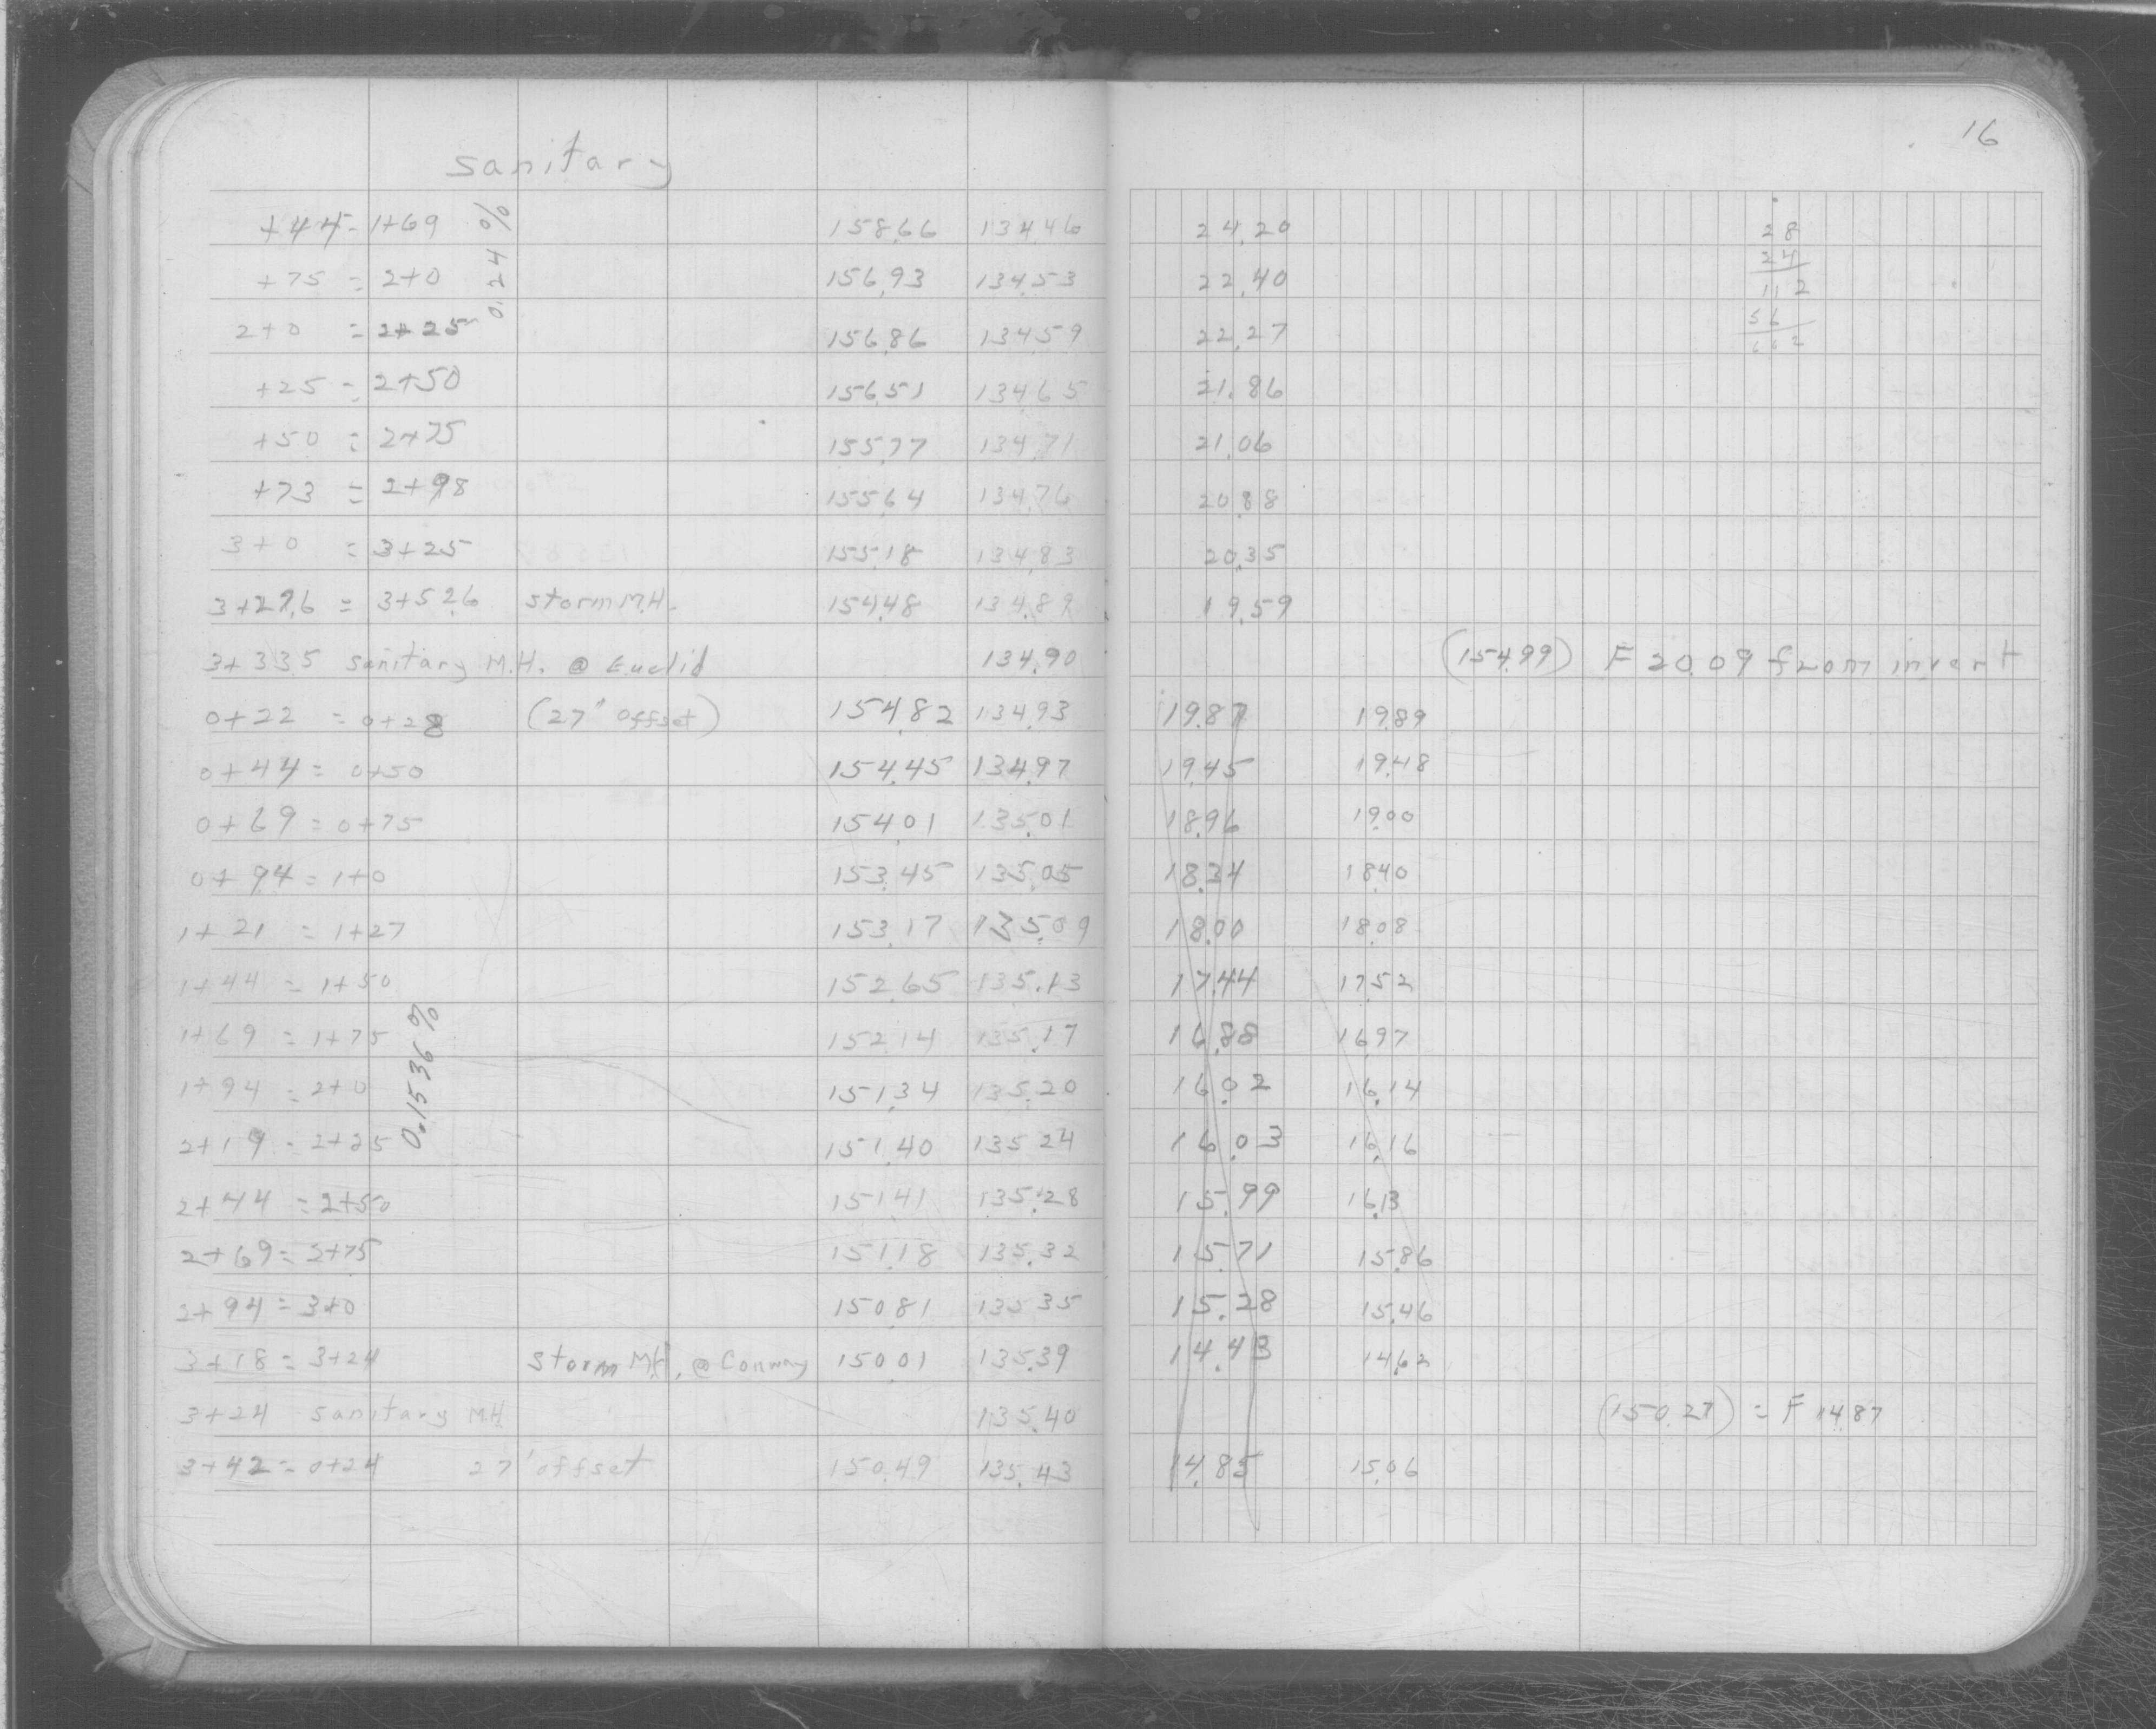 16
sanitary
+44 = 1+69 0.24 % 158.66 134.46 24.20 28
+75 = 2+0 156.93 134.53 22.40 24
2+0 = 2+25 156.86 134.59 22.27 112
56
+25 = 2+50 156.51 134.65 21.86
+50 = 2+75 155.77 134.71 21.06
+73 = 2+98 155.64 134.76 20.88
3+0 = 3+25 155.18 134.83 20.35
3+27.6 = 3+52.6 storm M.H. 154.48 134.89 19.59
3+33.5 sanitary M.H. @ Euclid 134.90 (154.99) F 20.09 from invert
0+22 = 0+28 (27" offset) 154.82 134.93 19.87 19.89
0+44 = 0+50 154.45 134.97 19.45 19.48
0+69 = 0+75 154.01 135.01 18.96 19.00
0+94 = 1+0 153.45 135.05 18.34 18.40
1+21 = 1+27 153.17 135.09 18.00 18.08
1+44 = 1+50 152.65 135.13 17.44 17.52
1+69 = 1+75 0.1536 % 152.14 135.17 16.88 16.97
1+94 = 2+0 151.34 135.20 16.02 16.14
2+19 = 2+25 151.40 135.24 16.03 16.16
2+44 = 2+50 151.41 135.28 15.99 16.13
2+69 = 2+75 151.18 135.32 15.71 15.86
2+94 = 3+0 150.81 135.35 15.28 15.46
3+18 = 3+24 storm M.H. @ Conway 150.01 135.39 14.43 14.62
3+24 sanitary M.H 135.40 (150.27) = F 14.87
3+42 = 0+24 27' offset 150.49 135.43 14.85 15.06